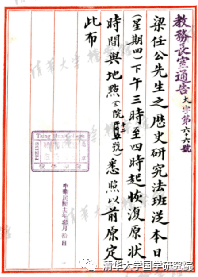 教務長室通告 大字第六六號
梁任公先生之歷史研究法班從本日
(星期四)下午三時至四時起恢復原狀
時間與地點 悉照以前原定
此布
清华大学国学研究院